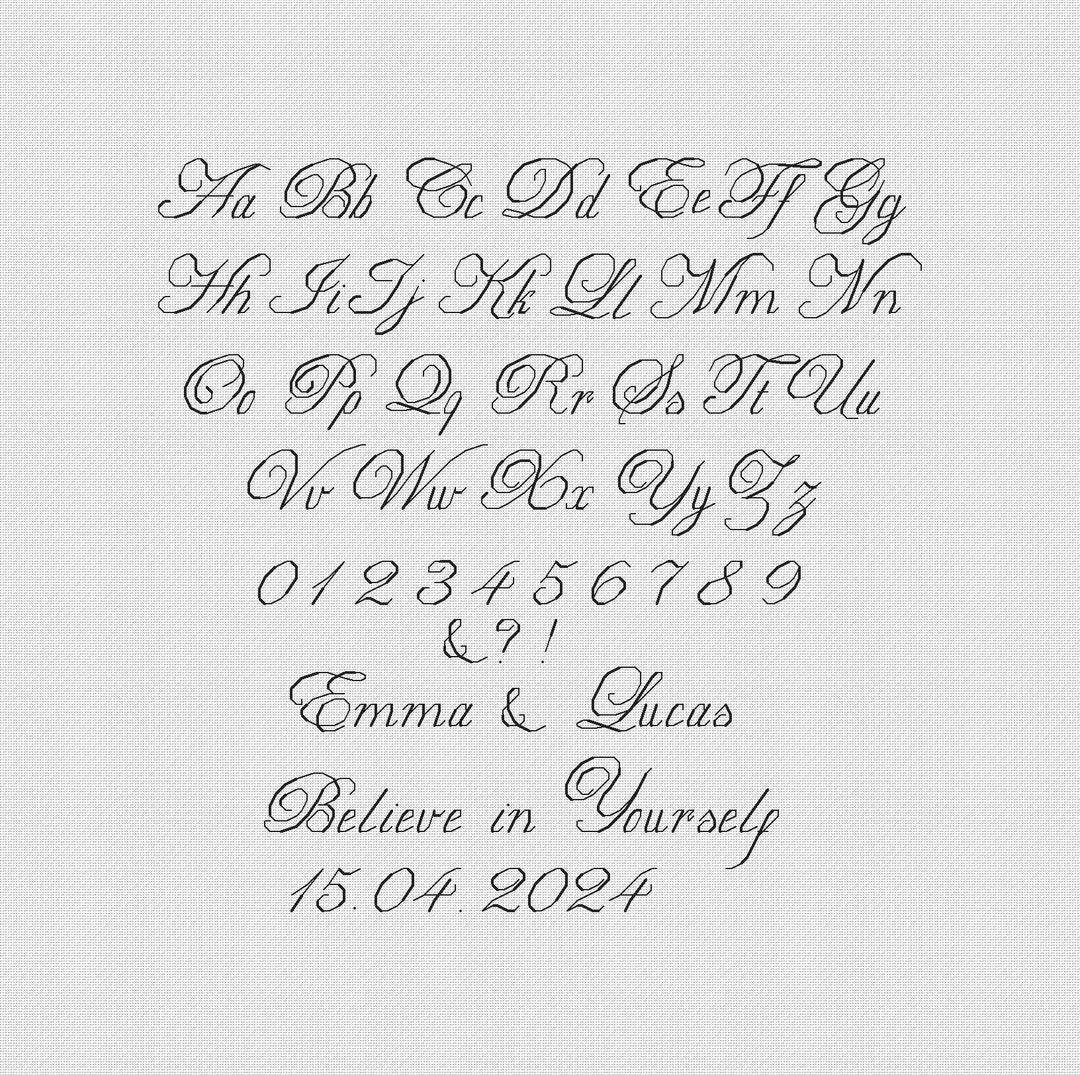 Aa Bb Cc Dd Ee Ff Gg
Hh Ii Jj Kk Ll Mm Nn
Oo Pp Qq Rr Ss Tt Uu
Vv Ww Xx Yy Zz
0 1 2 3 4 5 6 7 8 9
& ? !
Emma & Lucas
Believe in Yourself
15.04.2024